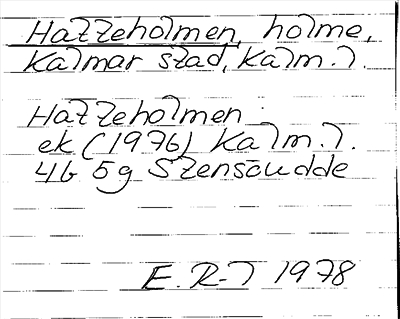 Hatteholmen, holme,
Kalmar stad, Kalm.l.
Hatteholmen
ek (1976) Kalm.l.
4G 5g Stensöudde
E. R-l 1978